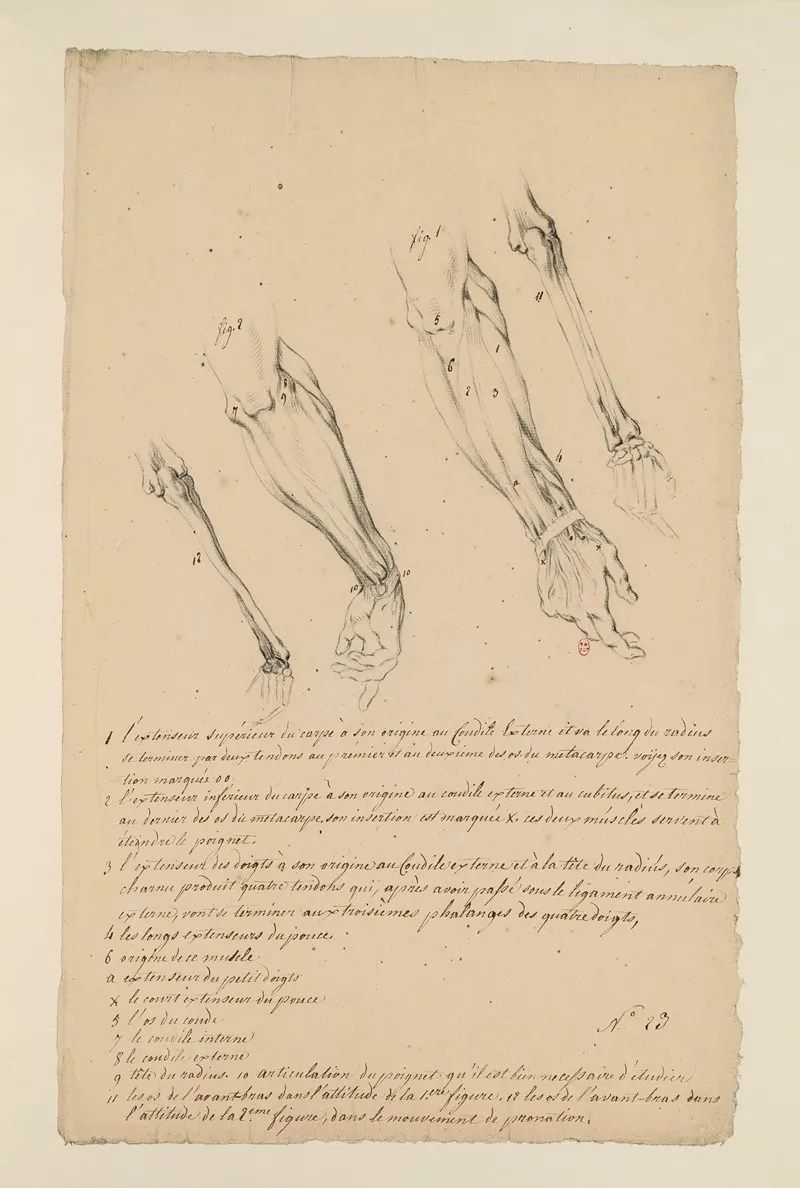 fig. 1
11
5
1
6
2
3
4
a
x
x
fig. 2
8
9
7
10
10
12
1 l'extenseur supérieur du carpe à son origine au Condile Externe et va le long du radius
se terminer par deux tendons au premier et au deuxième des os du métacarpe. voyez son inser-
-tion marquée oo.
2 l'extenseur inférieur du carpe à son origine au condile externe et au cubitus, et se termine
au dernier des os du métacarpe, son insertion est marquée X. ces deux muscles servent à
éteindre le poignet.
3 l'extenseur des doigts à son origine au Condile externe et à la tête du radius, son corps
charnu produit quatre tendons qui, après avoir passé sous le ligament annulaire
externe, vont se terminer aux troisièmes phalanges des quatre doigts,
4 les longs extenseurs du pouce.
6 origine de ce muscle
a extenseur du petit doigts
x le court extenseur du pouce
5 l'os du coude
7 le condile interne
8 le condile externe
9 tête du radius. 10 articulation du poignet qu'il est bien necessaire d'étudier
11 les os de l'avant-bras dans l'attitude de la 1ere figure. 12 les os de l'avant-bras dans
l'attitude de la 2eme figure, dans le mouvement de pronation.
N° 23